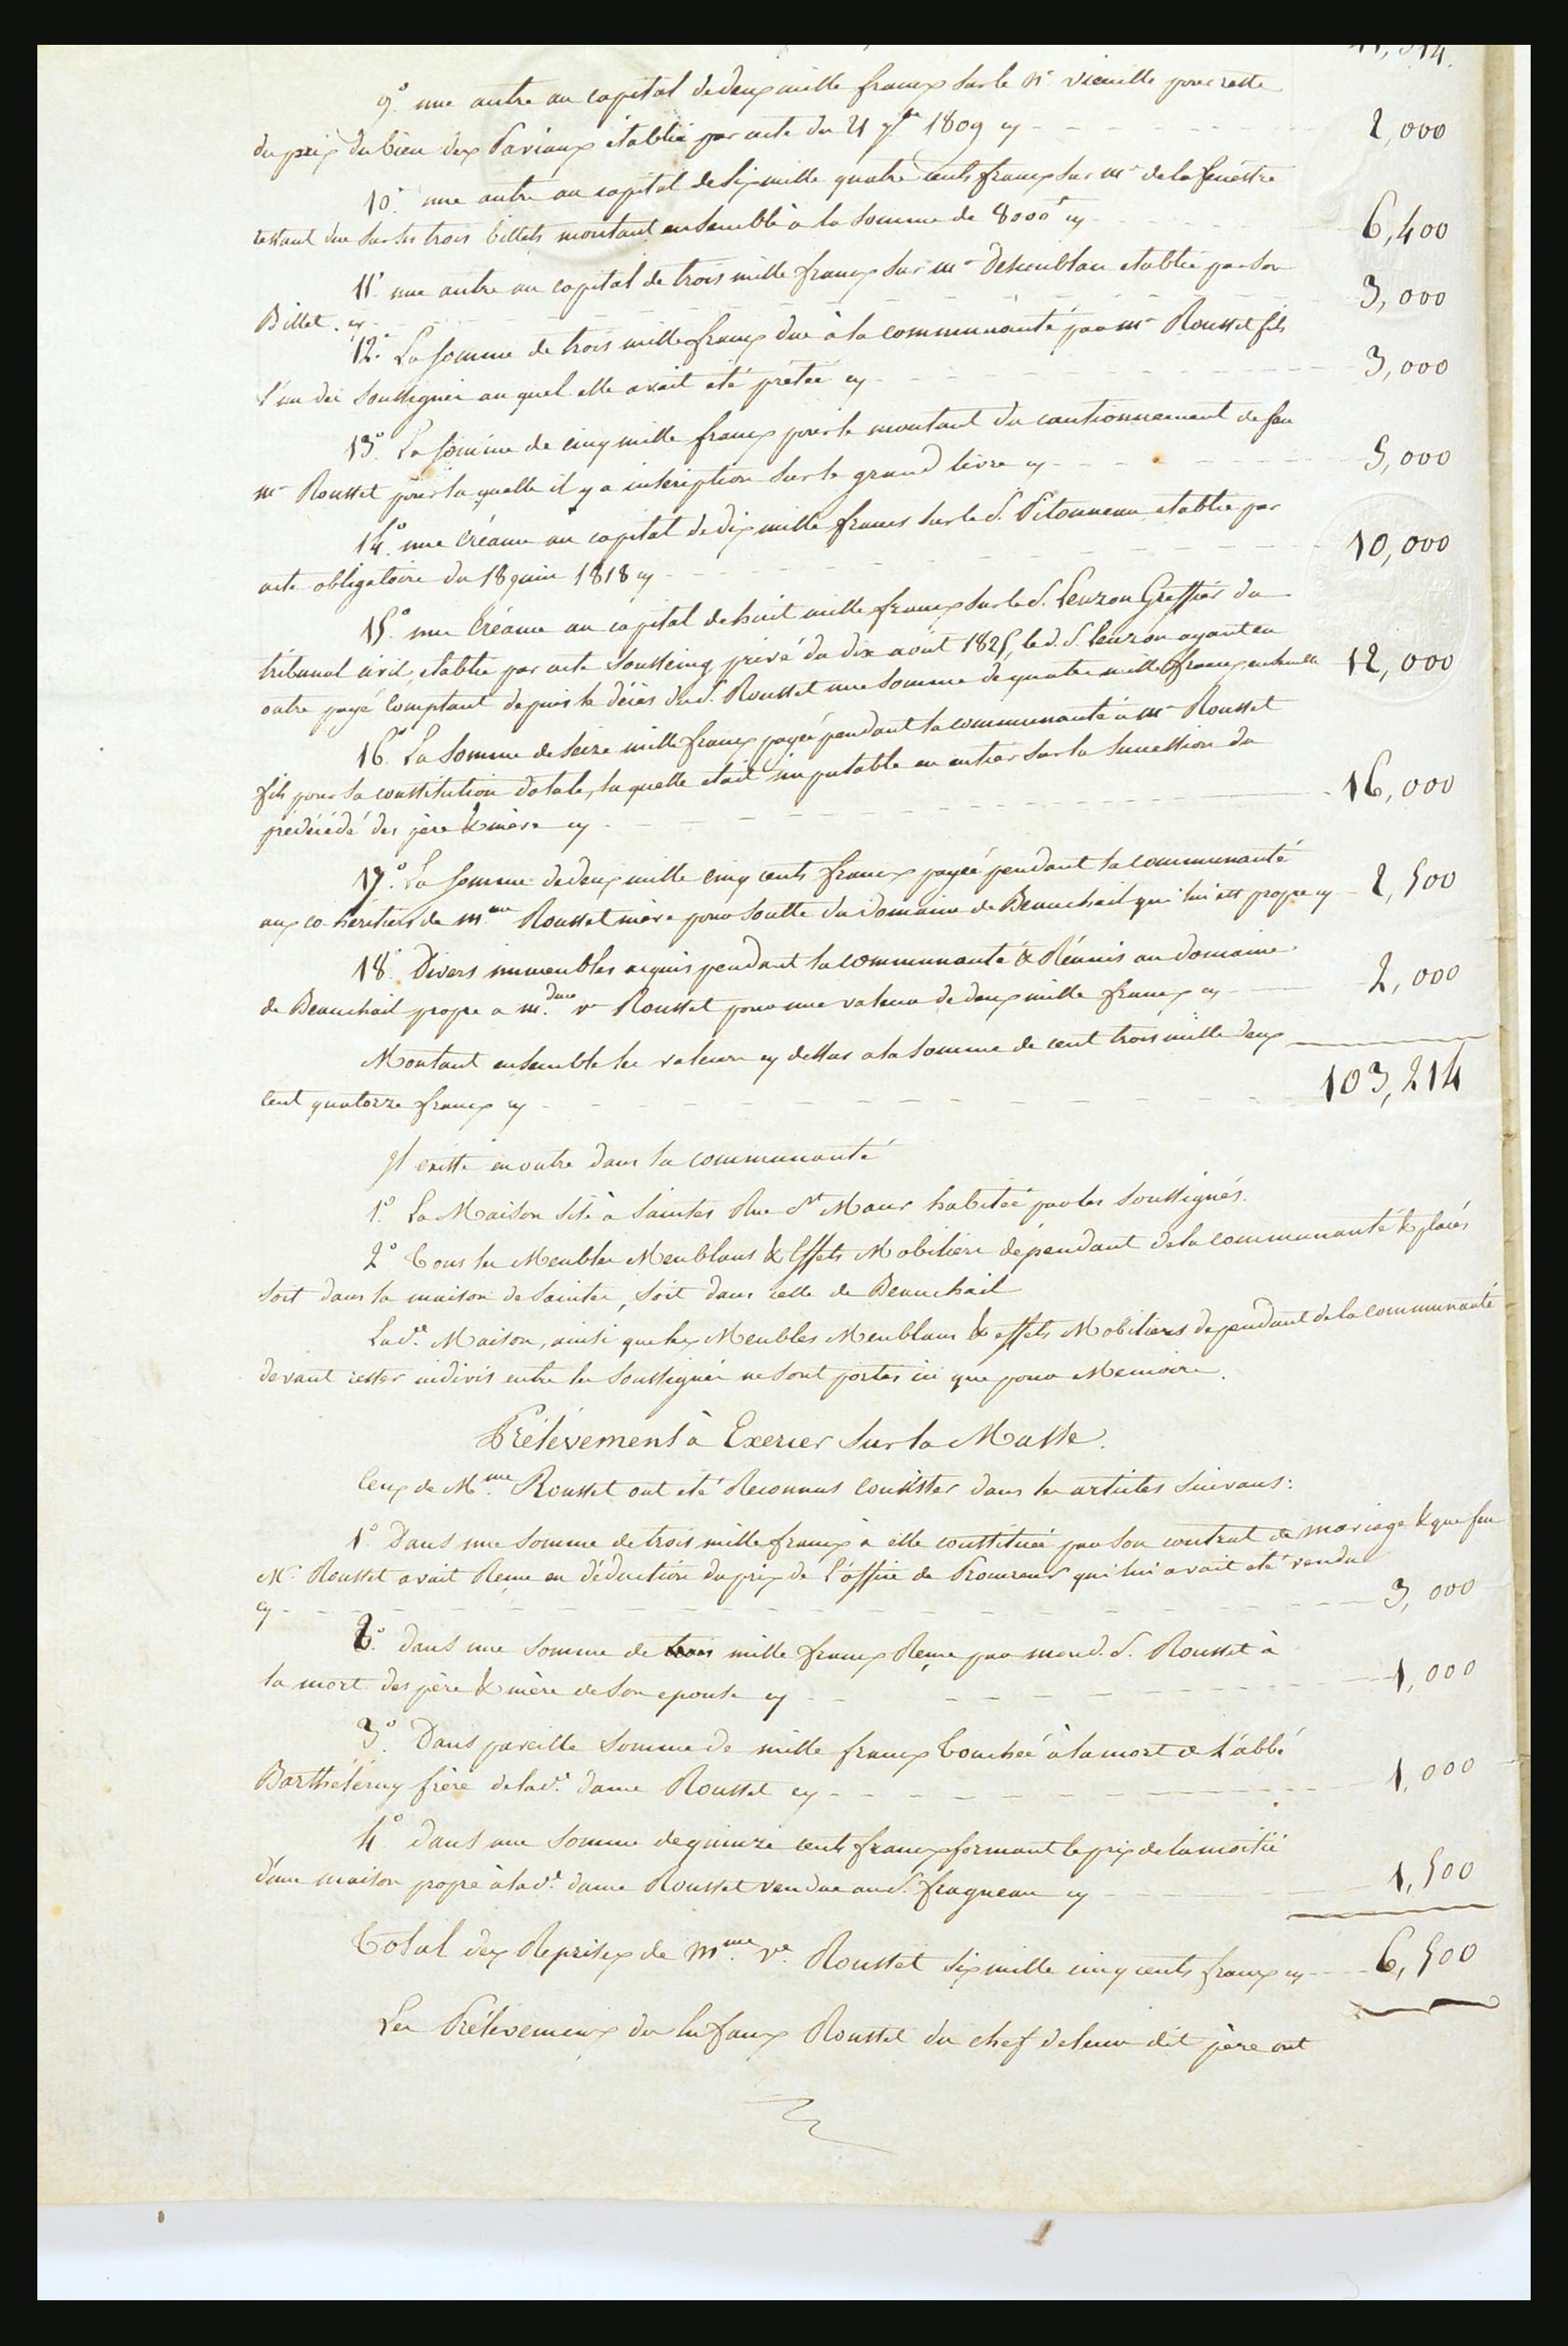 9.° une autre au capital de deux mille francs sur le Sr vieuille pour reste
du prix du bien des Pariaux établie par acte du 21 7bre 1809 cy 2,000
10.° une autre au capital de six mille quatre cents francs sur mr de la fenêstre
restant due sur ses trois billets montant ensemble à la somme de 8000f cy 6,400
11.° une autre au capital de trois mille francs sur mr établie par son
Billet. cy 3,000
12.° La somme de trois mille francs due à la communauté par mr Rousset fils
l'un des soussignés auquel elle avait été prêtée cy 3,000
13.° La somme de cinq mille francs pour le montant du cautionnement de feu
mr Rousset pour laquelle il y a inscription sur le grand livre cy 5,000
14.° une Créance au capital de dix mille francs sur le S. Pitonneau établie par
acte obligatoire du 18 juin 1818 cy 10,000
15.° une Créance au capital de huit mille francs sur le S. Leuzon Greffier du
tribunal civil, établie par acte sousseing privé du dix août 1825, le d. S. Leuzon ayant en
outre payé comptant depuis le décès du d. Rousset une somme de quatre mille francs, ensemble 12,000
16.° La somme de seize mille francs payée pendant la communauté à mr Rousset
fils pour sa constitution dotale, laquelle était imputable en entier sur la succession du
prédécédé des père & mère cy 16,000
17.° La somme de deux mille cinq cents francs payée pendant la communauté
aux co-héritiers de mme Rousset mère pour soulte du domaine de Beauchail qui lui est propre cy 2,500
18.° Divers immeubles acquis pendant la communauté & Réunis au domaine
de Beauchail propre a mdame ve Rousset pour une valeur de deux mille francs cy 2,000
Montant ensemble les valeurs cy dessus a la somme de cent trois mille deux
cent quatorze francs cy 103,214
Il existe en outre dans la communauté
1.° La Maison sise à Saintes Rue St Maur habitée par les soussignés.
2.° Tous les Meubles Meublans & Effets Mobiliers dépendant de la communauté & placés
soit dans la maison de Saintes, soit dans celle de Beauchail
La de. Maison, ainsi que les Meubles Meublans & effets Mobiliers dependant de la communauté
devant rester indivis entre les soussignés ne sont portés ici que pour Memoire.
Prélèvements à Exercer sur la Masse.
Ceux de Mme Rousset ont été Reconnus consister dans les articles suivans:
1.° Dans une somme de trois mille francs à elle constituée par son contrat de mariage & que feu
Mr Rousset avait Reçue en déduction du prix de l'office de Procureur qui lui avait été vendu
cy 3,000
2.° dans une somme de mille francs Reçue par mond. S. Rousset à
la mort des père & mère de son epouse cy 1,000
3.° Dans pareille somme de mille francs Touchée à la mort de l'abbé
Barthélemy frère de la de. dame Rousset cy 1,000
4.° dans une somme de quinze cents francs formant le prix de la moitié
d'une maison propre à la de. dame Rousset vendue au S. fragneau cy 1,500
Total des Reprises de mme ve Rousset six mille cinq cents francs cy 6,500
Les Prélevemens des Enfans Rousset du chef de leur dit père ont